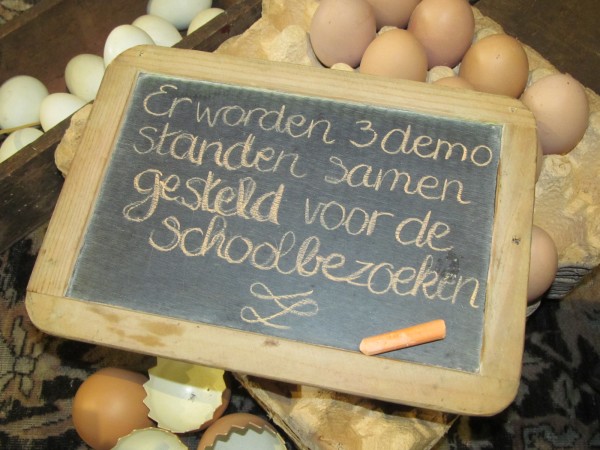 Er worden 3 demo
standen samen
gesteld voor de
schoolbezoeken